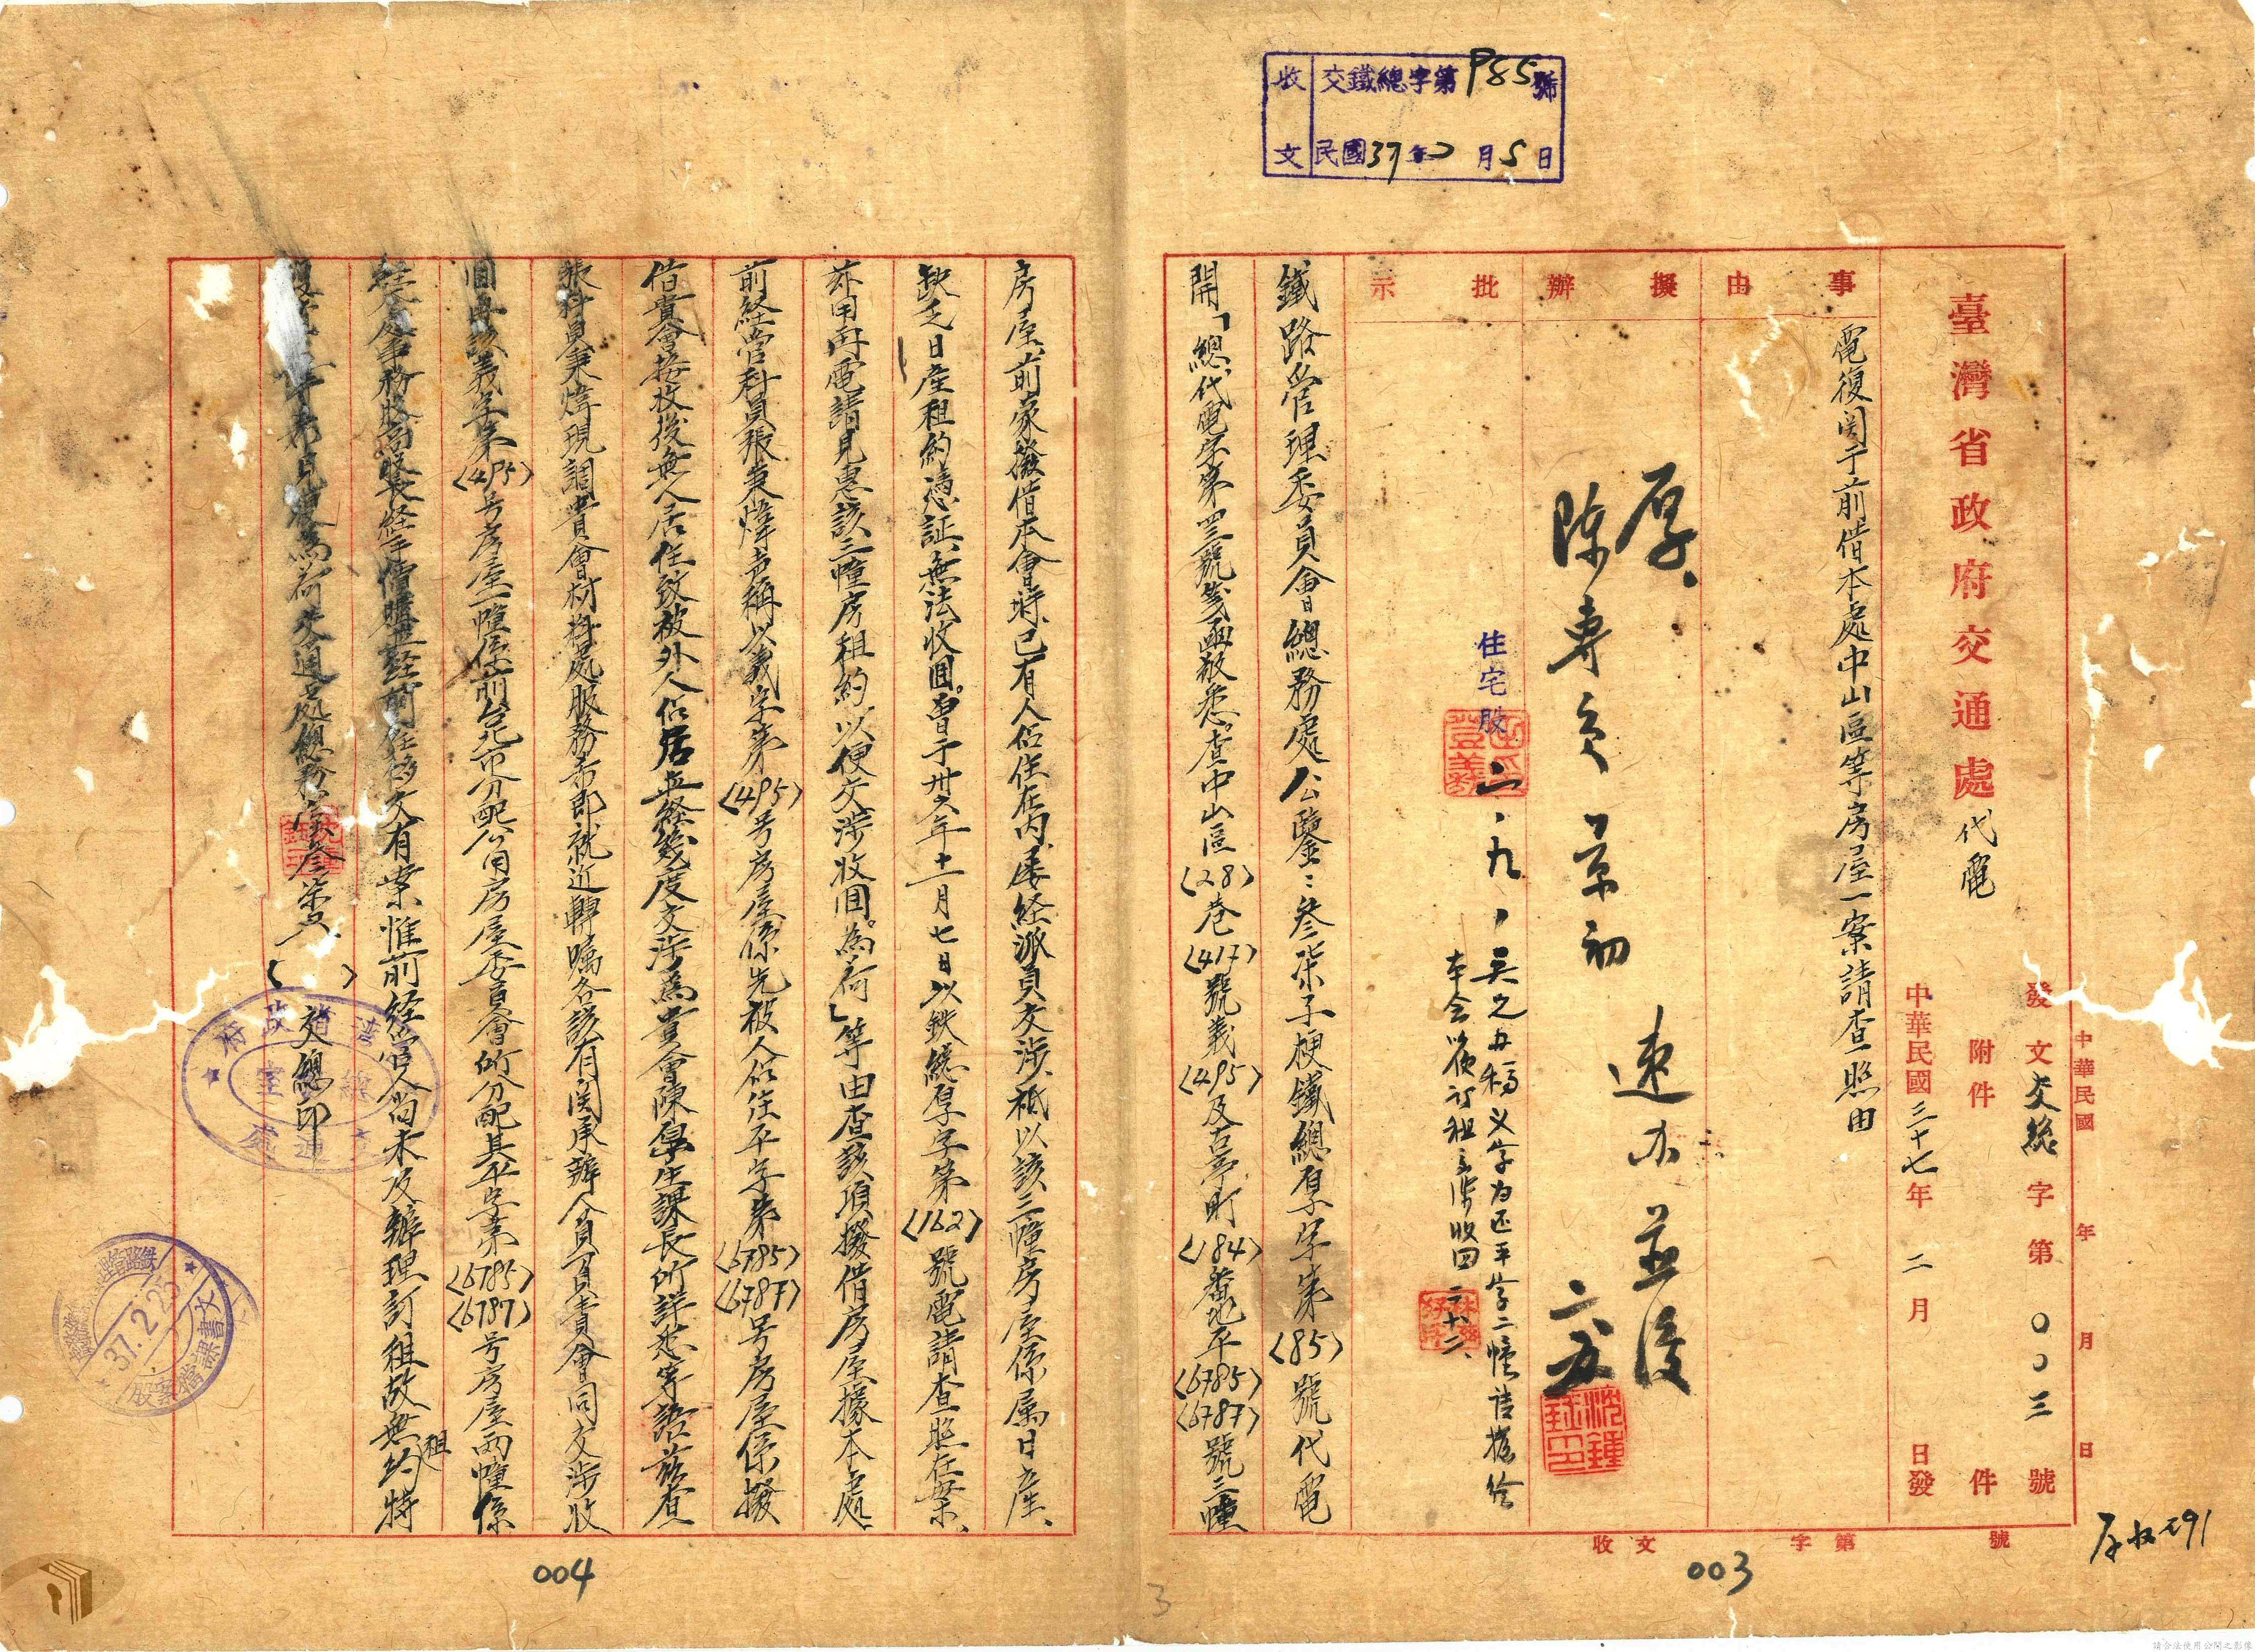 收文 交鐵總字第985號
民國37年2月5日
臺灣省政府交通處代電
中華民國 年 月 日
發文交總字第〇〇三號
附件 件
中華民國三十七年二月 日發
事由
電復関于前借本處中山區等房屋一案請查照由
擬辦
厚
陳專員景初 速办並復
二五
批示
住宅股
二、九、
本会以便訂租交涉收回 二、十二、
鐵路管理委員會總務處公鑒：叁柒子梗鐵總厚字第(85)號代電
開「總代電字第四三號箋函敬悉。查中山區(28)巷(417)號義(495)及古亭町(184)番地平(6785)(6787)號三幢
房屋、前蒙撥借本會時、已有人佔住在内、屢経派員交涉、祗以該三幢房屋係属日產、
缺乏日產租約憑証、無法收回。曾于卅六年十一月七日以鉄總厚字第(162)號電請查照在案、
茲用再電請見惠該三幢房租約、以便交涉收回。為荷」等由查該項撥借房屋據本處
前経管科員張秉煒声稱以義字第(495)号房屋係先被人佔住平字第(6785)(6787)号房屋係撥
借貴會接收後無人居住致被外人佔居並経幾度交涉為貴會陳學生課長所詳悉等語茲查
張科員秉煒現調貴會材料處服務希即就近轉囑各該有関承辦人員負責會同交涉收
回再該義字第(495)号房屋一幢係前台北市分配公用房屋委員會所分配其平字第(6785)(6787)号房屋兩幢係
有案惟前経管人尚未及辦理訂租故無租約特
為荷交通處總務室叁柒丑
( )交總印
臺灣省政府交通處總務室
37.2.25
文書課檔案股
厚收291
003
004
3